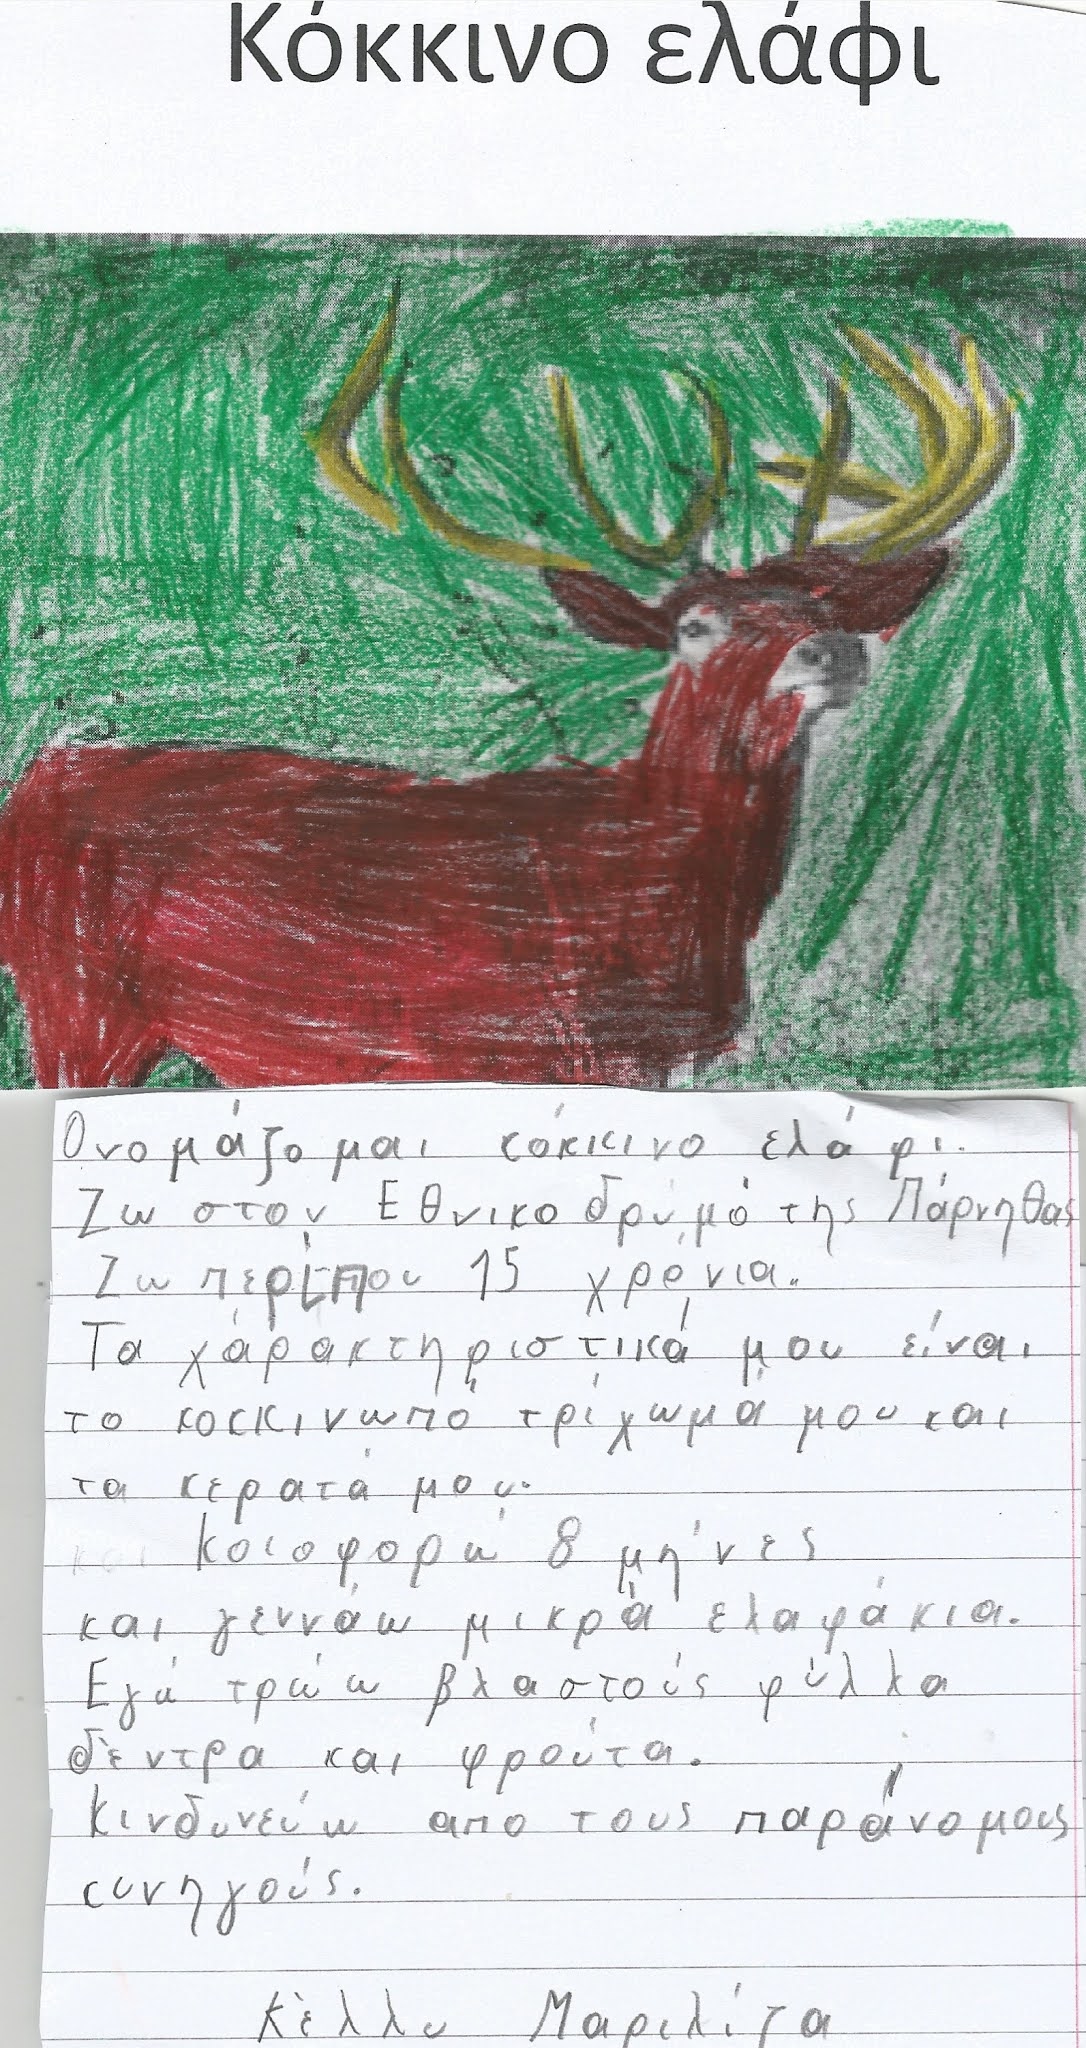 Κόκκινο ελάφι
Ονομάζομαι κόκκινο ελάφι.
Ζω στον Εθνικο δρυμό της Πάρνηθας
Ζω περίπου 15 χρόνια.
Τα χάρακτηριστικά μου είναι
το κοκκινωπό τρίχωμά μου και
τα κερατά μου.
και Κοιοφορώ 8 μήνες
και γεννάω μικρά ελαφάκια.
Εγώ τρώω βλαστούς φύλλα
δέντρα και φρούτα.
Κινδυνεύω απο τους παράνομους
συνηγούς.
Κέλλυ Μαριλίζα